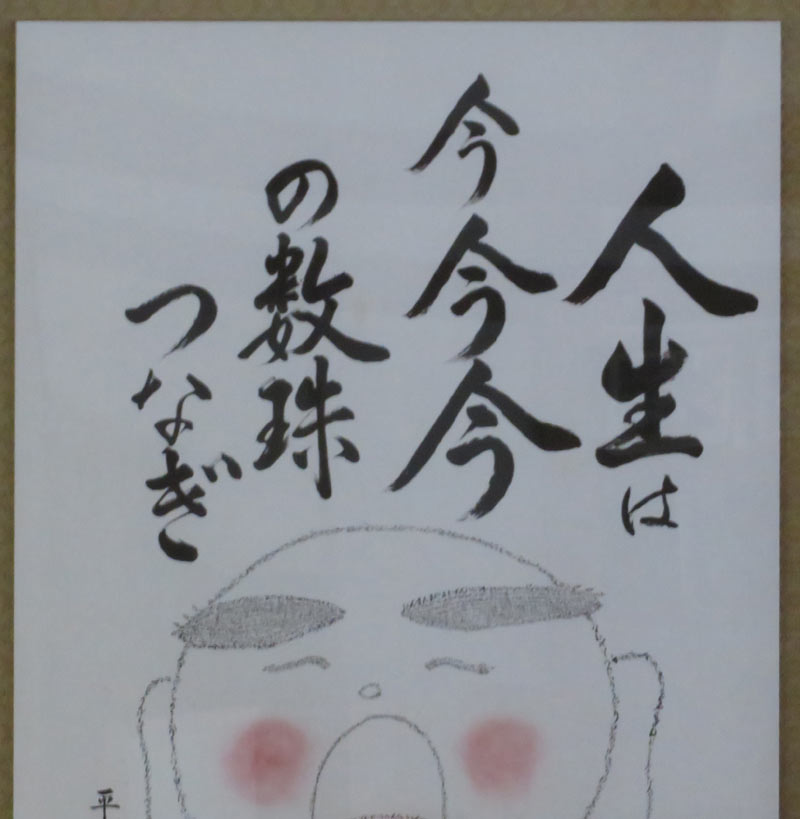 人生は
今今今
の数珠
つなぎ
平